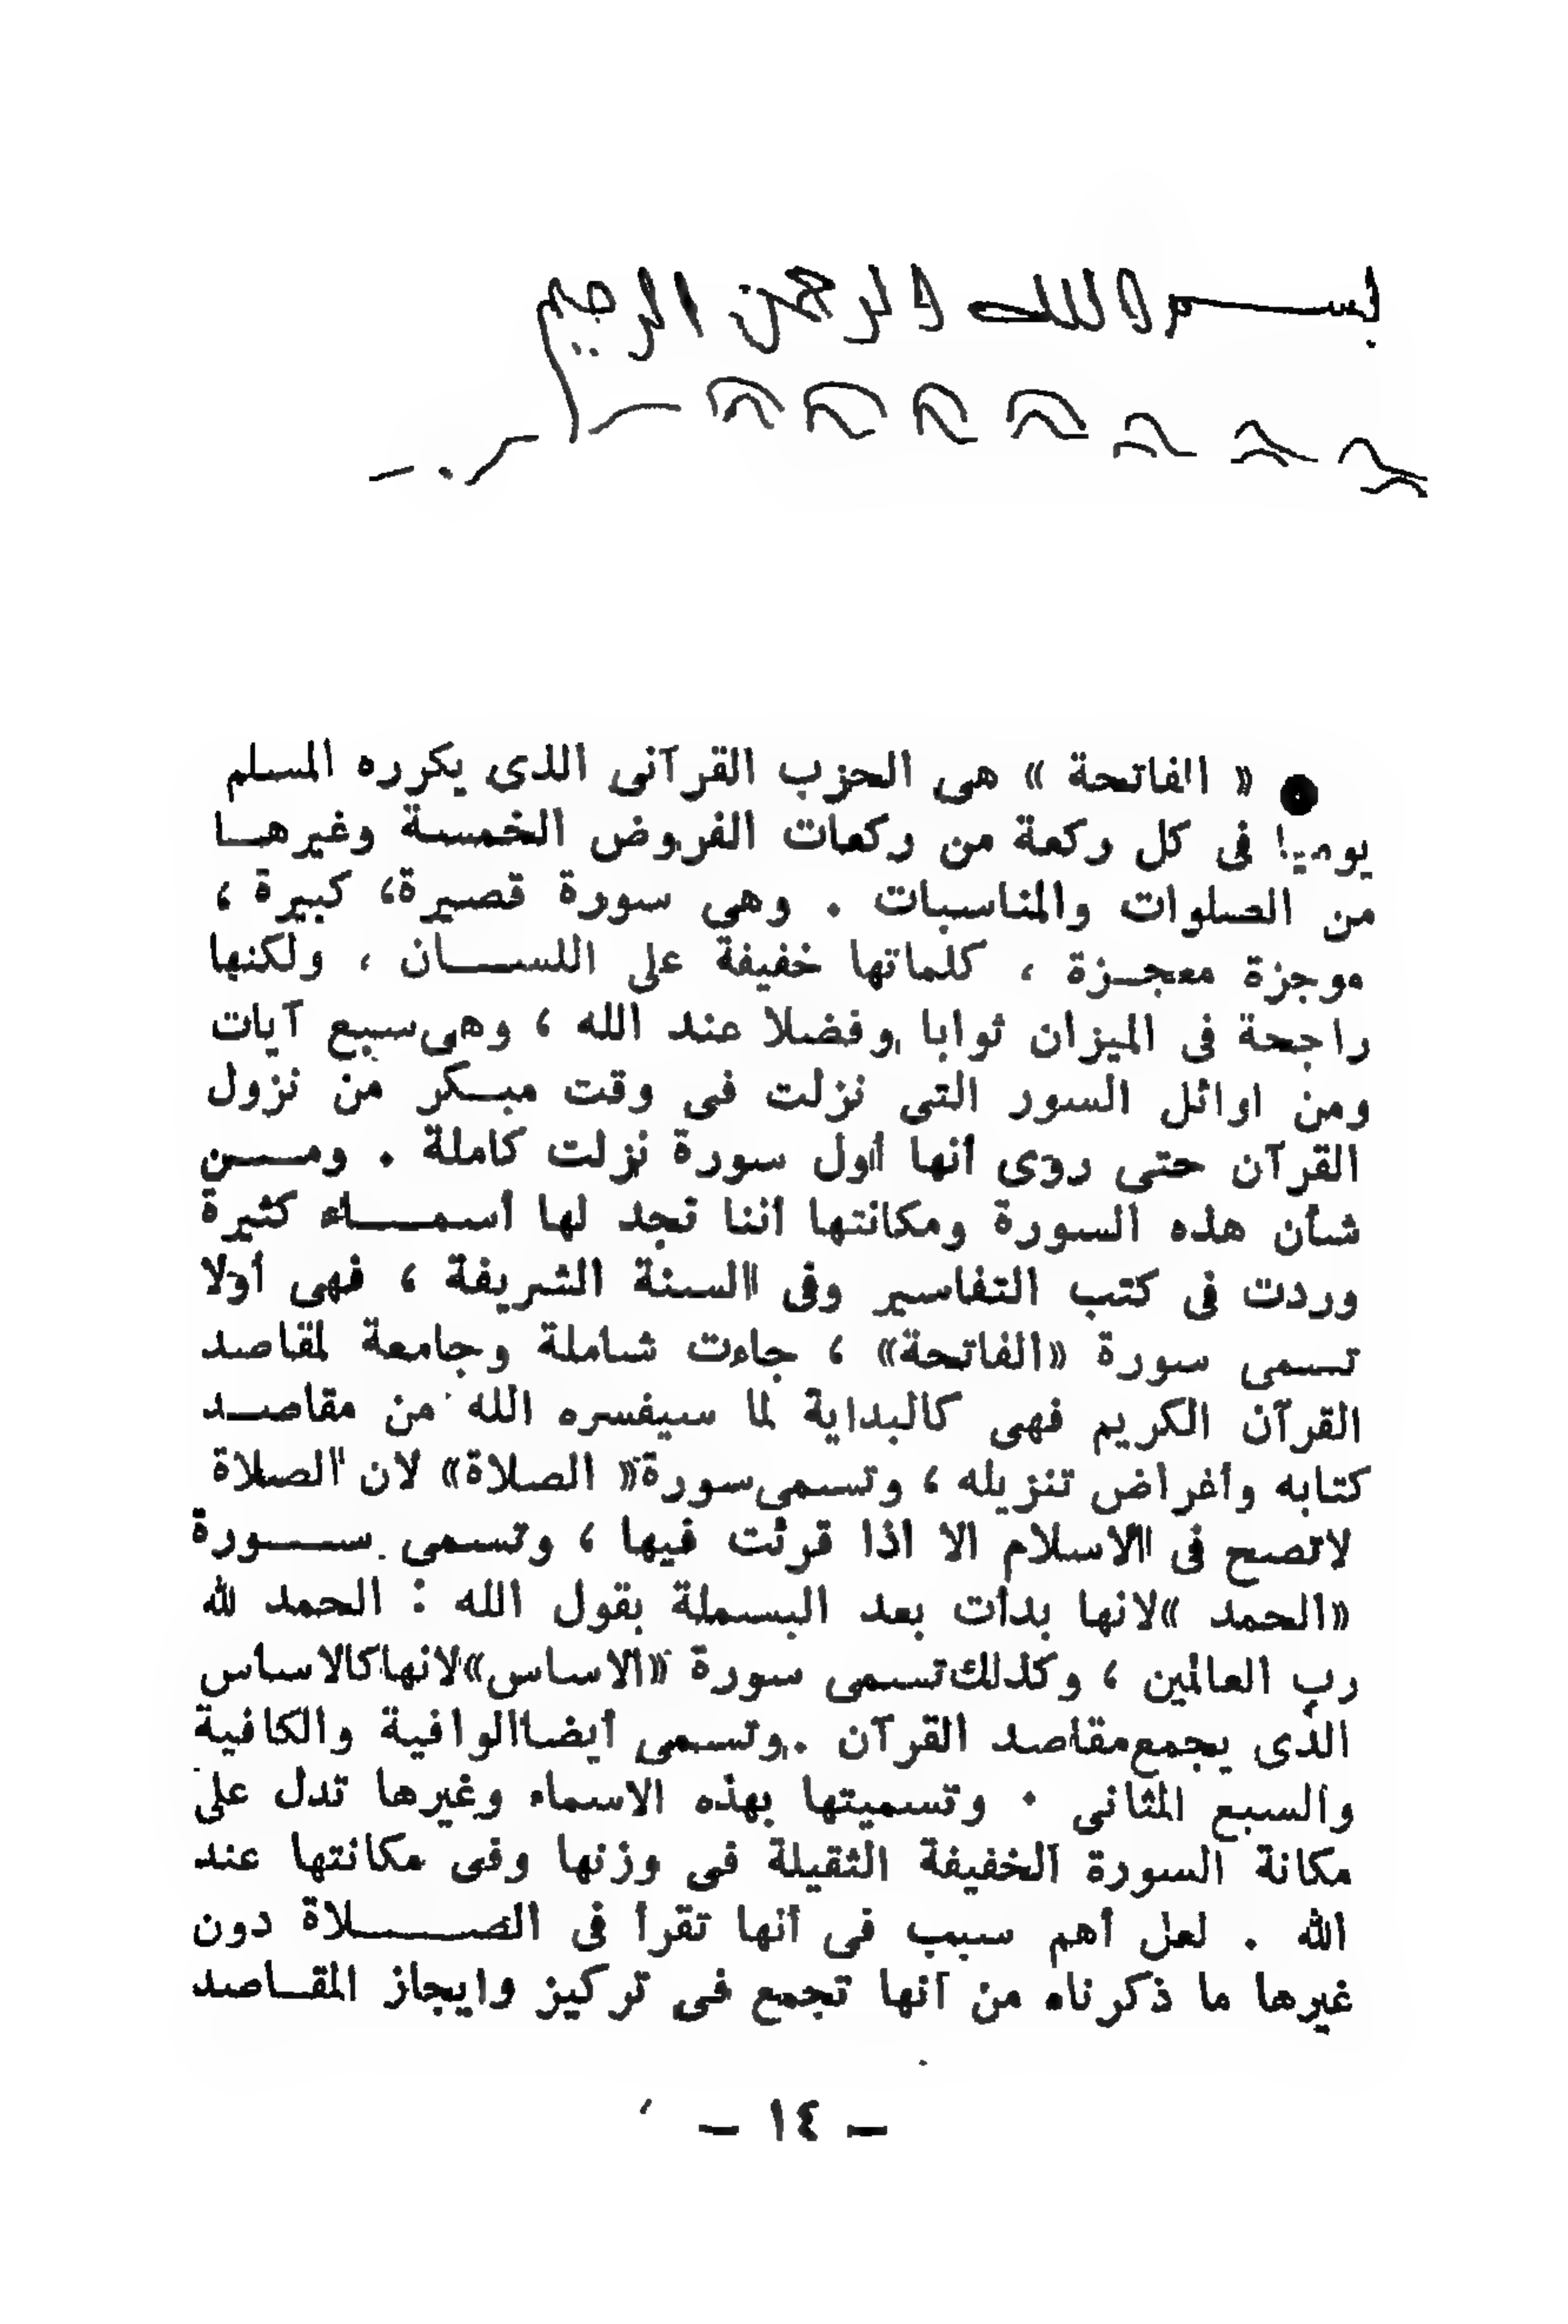 بسم الله الرحمن الرحيم
● « الفاتحة » هى الحزب القرآنى الذى يكرره المسلم
يوميا فى كل ركعة من ركعات الفروض الخمسة وغيرهـا
من الصلوات والمناسبات . وهى سورة قصيرة، كبيرة ،
موجزة معجـزة ، كلماتها خفيفة على اللســـان ، ولكنها
راجحة فى الميزان ثوابا وفضلا عند الله ، وهى سبع آيات
ومن اوائل السور التى نزلت فى وقت مبـكر من نزول
القرآن حتى روى أنها أول سورة نزلت كاملة . ومـــن
شأن هذه السورة ومكانتها اننا نجد لها أسمـــاء كثيرة
وردت فى كتب التفاسير وفى السنة الشريفة ، فهى أولا
تسمى سورة «الفاتحة» ، جاءت شاملة وجامعة لمقاصد
القرآن الكريم فهى كالبداية لما سيفسره الله من مقاصـد
كتابه وأغراض تنزيله ، وتسمى سورة « الصلاة» لان الصلاة
لاتصح فى الاسلام الا اذا قرئت فيها ، وتسمى ســـورة
«الحمد »لانها بدأت بعد البسملة بقول الله : الحمد لله
رب العالمين ، وكذلك تسمى سورة «الاساس»لانها كالاساس
الذى يجمع مقاصد القرآن . وتسمى أيضا الوافية والكافية
والسبع المثانى . وتسميتها بهذه الاسماء وغيرها تدل على
مكانة السورة الخفيفة الثقيلة فى وزنها وفى مكانتها عند
الله . لعل أهم سبب فى أنها تقرأ فى الصـــــلاة دون
غيرها ما ذكرناه من أنها تجمع فى تركيز وايجاز المقـاصد
– ١٤ –